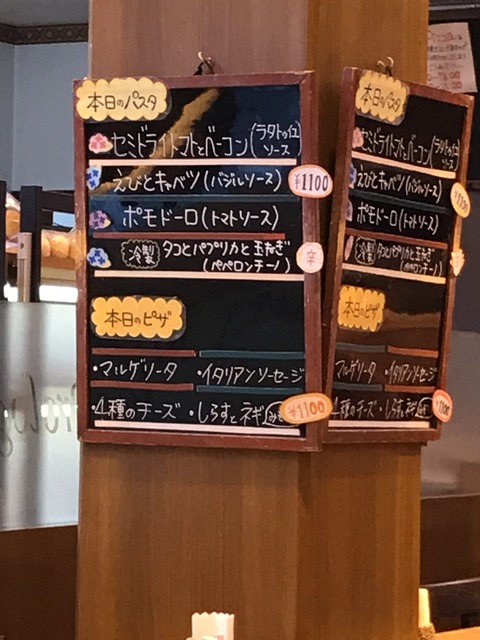 本日のパスタ
セミドライトマトとベーコン(ラタトゥイユソース)
えびとキャベツ(バジルソース)
¥1100
ポモドーロ(トマトソース)
冷製 タコとパプリカと玉ねぎ
(ペペロンチーノ)
辛
本日のピザ
・マルゲリータ ・イタリアンソーセージ
・4種のチーズ ・しらすとネギ
¥1100
本日のパスタ
セミドライトマトとベーコン(ラタトゥイユソース)
えびとキャベツ(バジルソース)
ポモドーロ(トマトソース)
冷製 タコとパプリカと玉ねぎ
(ペペロンチーノ)
本日のピザ
マルゲリータ ・イタリアンソーセージ
4種のチーズ ・しらすとネギ
¥1100